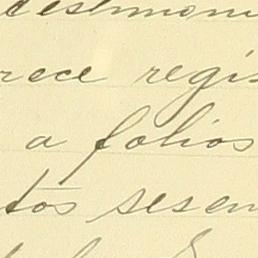 destimoni
rece regis
a folios
tos sesen